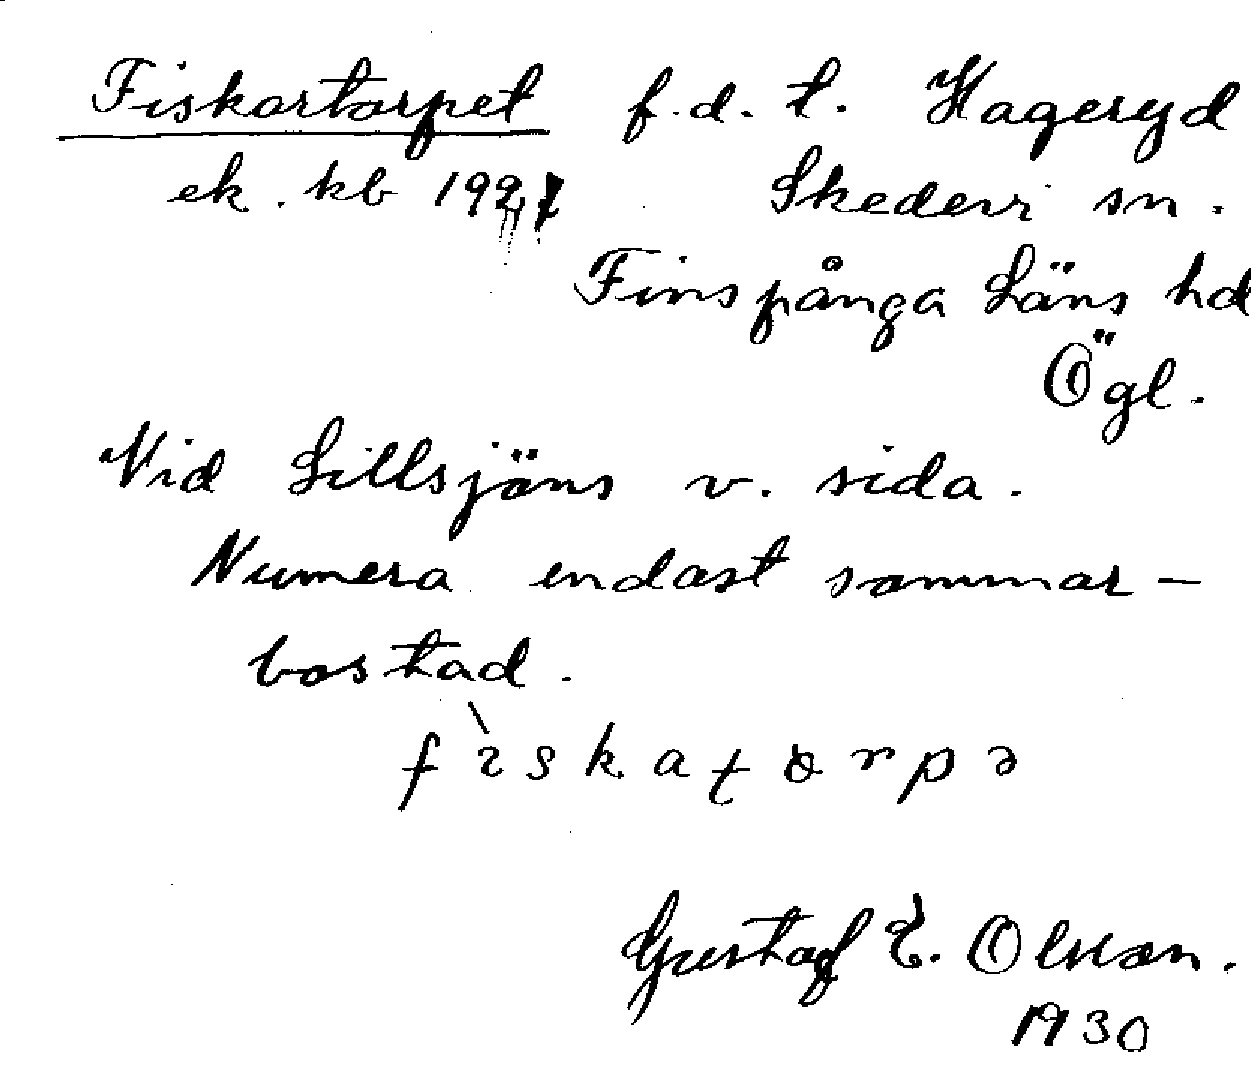 Fiskartorpet f.d. t. Hageryd
ek. kb 1921 Skedevi sn.
Finspånga Läns hd
Ögl.
Vid Lillsjöns v. sida.
Numera endast sommar-
bostad.
fìskatorpə
Gustaf E. Olsson.
1930